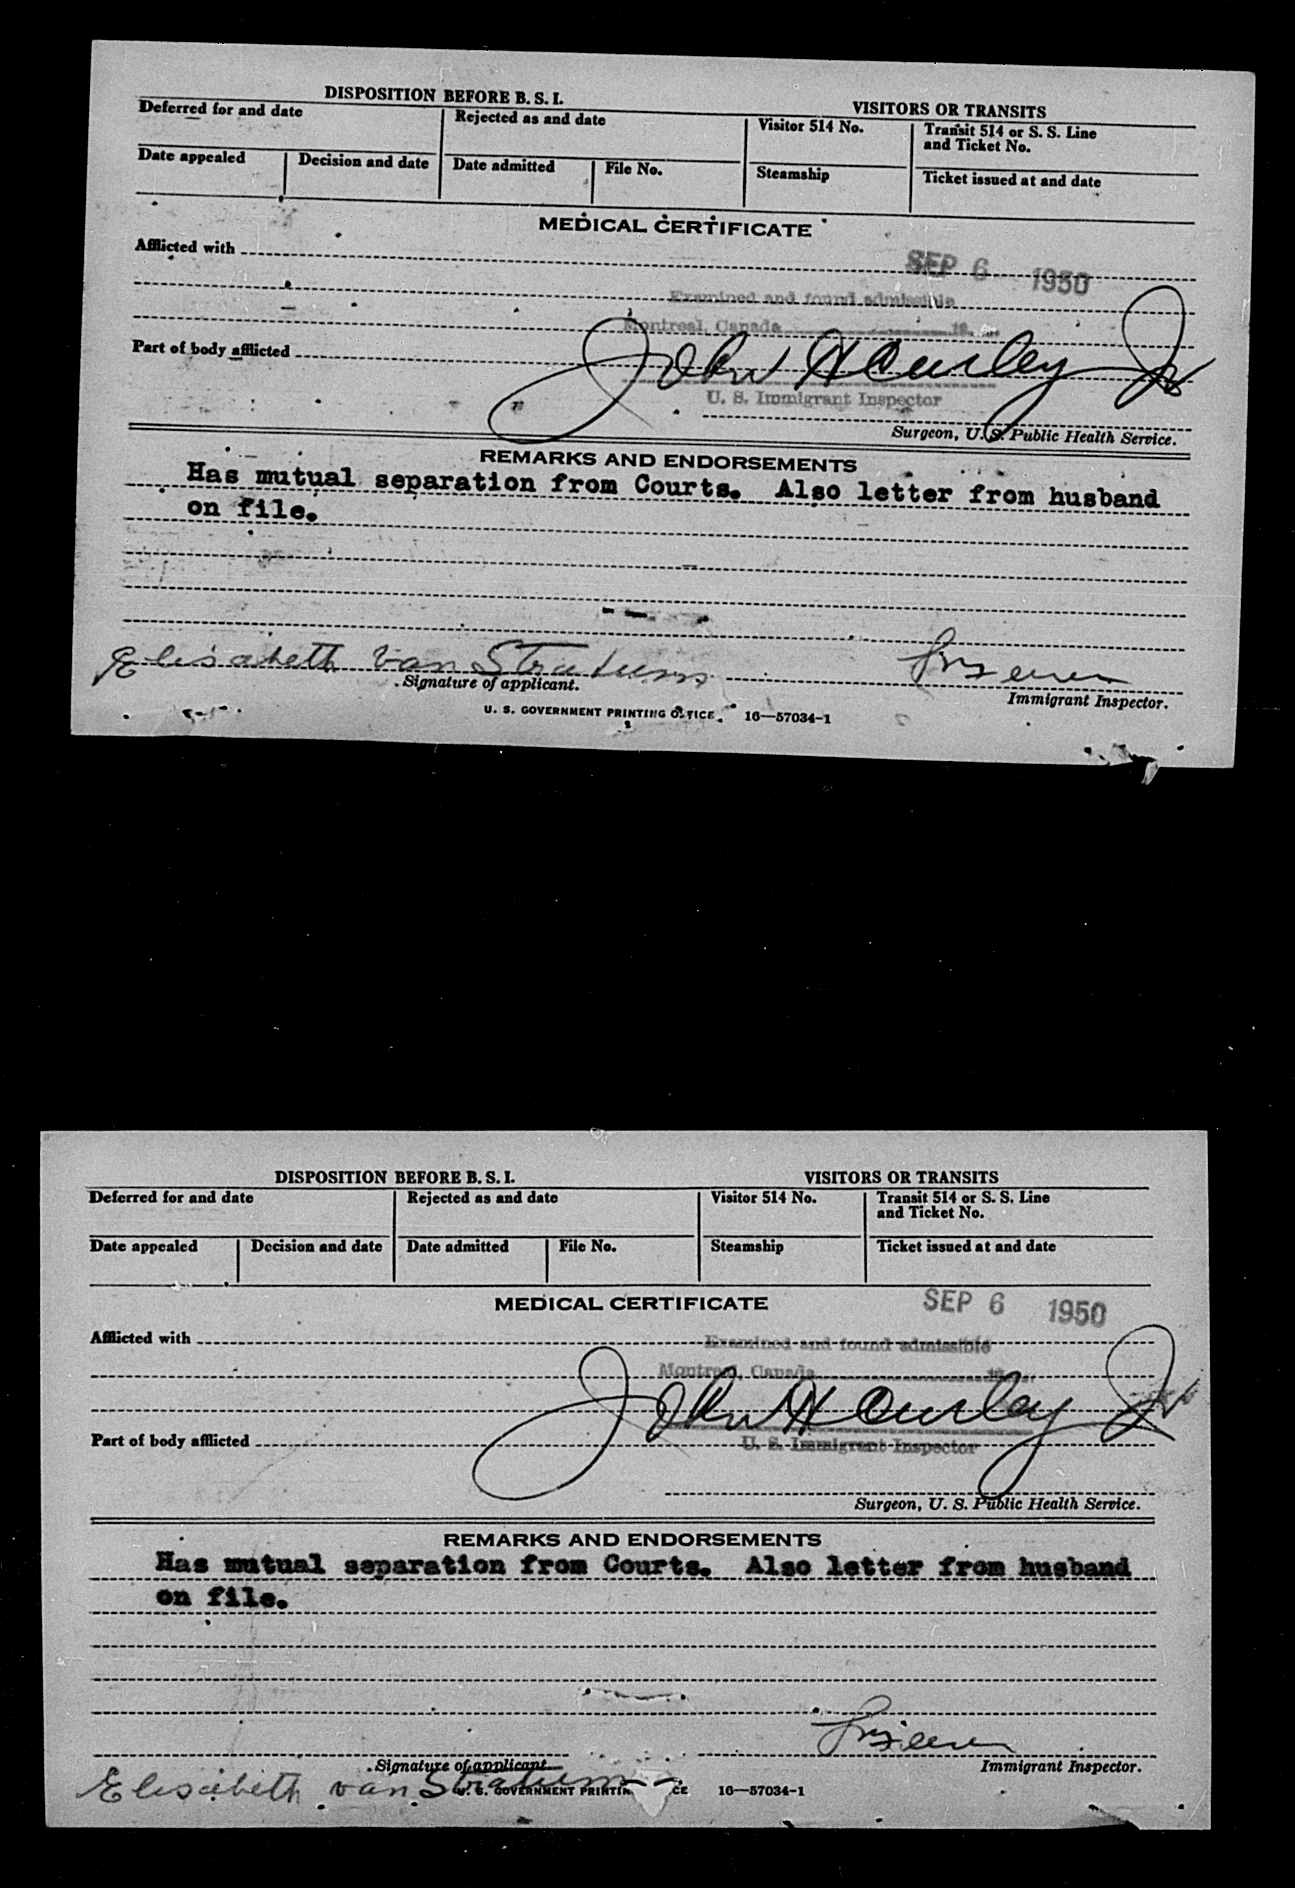 DISPOSITION BEFORE B. S. I.
VISITORS OR TRANSITS
Deferred for and date
Rejected as and date
Visitor 514 No.
Transit 514 or S. S. Line
and Ticket No.
Date appealed
Decision and date
Date admitted
File No.
Steamship
Ticket issued at and date
MEDICAL CERTIFICATE
Afflicted with
SEP 6 1950
Examined and found admissible
Montreal, Canada 19
Part of body afflicted
John H Curley Jr
U. S. Immigrant Inspector
Surgeon, U. S. Public Health Service.
REMARKS AND ENDORSEMENTS
Has mutual separation from Courts. Also letter from husband
on file.
Elisabeth van Stratum
Signature of applicant.
Immigrant Inspector.
U. S. GOVERNMENT PRINTING OFFICE 16—57034-1
DISPOSITION BEFORE B. S. I.
VISITORS OR TRANSITS
Deferred for and date
Rejected as and date
Visitor 514 No.
Transit 514 or S. S. Line
and Ticket No.
Date appealed
Decision and date
Date admitted
File No.
Steamship
Ticket issued at and date
MEDICAL CERTIFICATE
SEP 6 1950
Afflicted with
Examined and found admissible
Montreal, Canada 19
John H Curley Jr
Part of body afflicted
U. S. Immigrant Inspector
Surgeon, U. S. Public Health Service.
REMARKS AND ENDORSEMENTS
Has mutual separation from Courts. Also letter from husband
on file.
Signature of applicant
Immigrant Inspector.
Elisabeth van Stratum
U. S. GOVERNMENT PRINTIN CE 16—57034-1